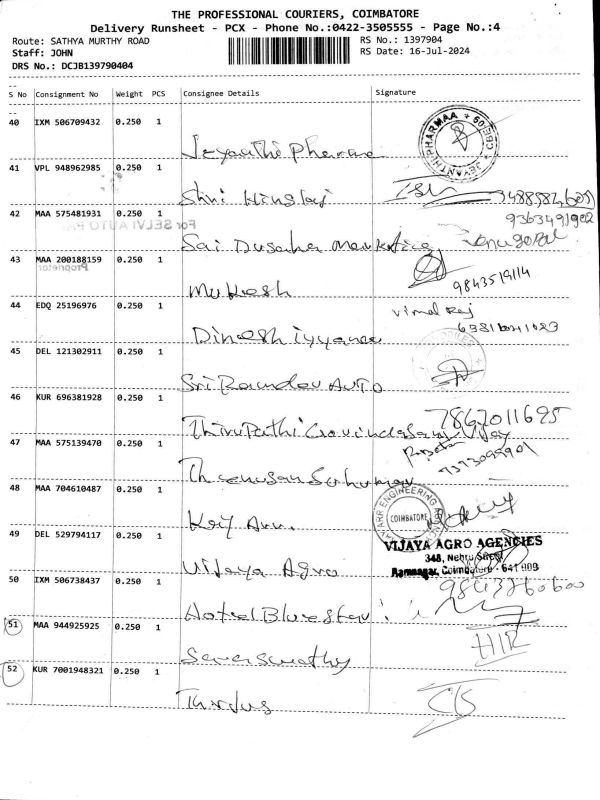 THE PROFESSIONAL COURIERS, COIMBATORE
Delivery Runsheet - PCX - Phone No.:0422-3505555 - Page No.:4
Route: SATHYA MURTHY ROAD RS No.: 1397904
Staff: JOHN RS Date: 16-Jul-2024
DRS No.: DCJB139790404
S No Consignment No Weight PCS Consignee Details Signature
40 IXM 506709432 0.250 1
Jeyanthi Pharma
JEYANTHI PHARMAA CBE-09
41 VPL 948962985 0.250 1
Shri Hinglaj
42 MAA 575481931 0.250 1 9363491902
For SELVI AUTO
Sai Dusaha Marketing Venugopal
43 MAA 200188159 0.250 1
Proprietor
Mukesh 9843519114
44 EDQ 25196976 0.250 1 Vimal Raj
Dinesh Iyyanar
45 DEL 121302911 0.250 1
Sri Ramdev Auto
46 KUR 696381928 0.250 1 7867011695
Thirupathi Govindasamy Vijay
47 MAA 575139470 0.250 1
48 MAA 704610487 0.250 1
ENGINEERING
COIMBATORE
49 DEL 529794117 0.250 1 VIJAYA AGRO AGENCIES
348, Nehru Street
Vijaya Agro Ramnagar, Coimbatore - 641 009
50 IXM 506738437 0.250 1 9843760600
Hotel Bluestar
51 MAA 944925925 0.250 1
Saraswathy
52 KUR 7001948321 0.250 1
Tardus